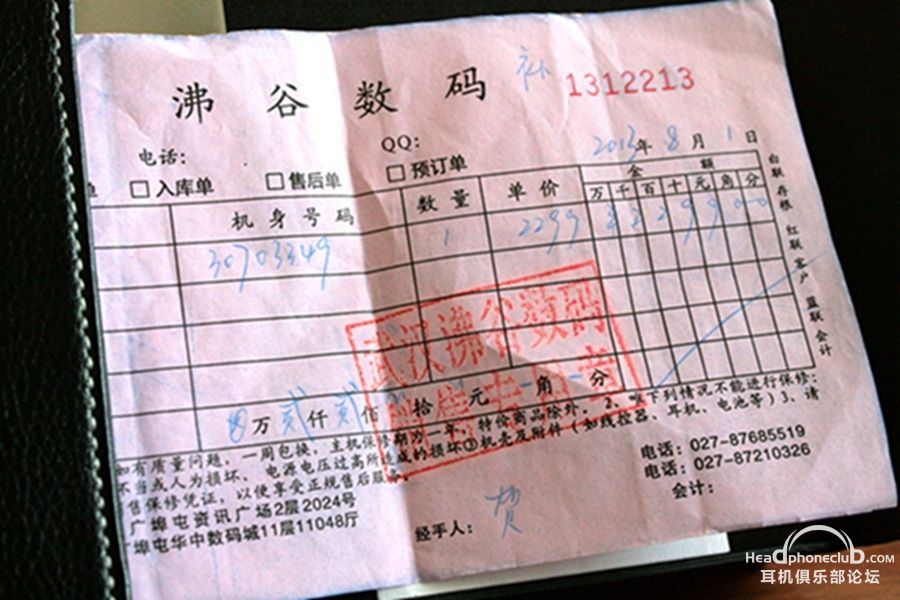 沸谷数码 补 1312213
电话: QQ:
2013年8月1日
单 □入库单 □售后单 □预订单
机身号码 数量 单价 金额
万千百十元角分
30703349 1 2299 229900
白联存根 红联客户 蓝联会计
武汉沸谷数码
万贰仟贰佰 拾 元 角 分
如有质量问题，一周包换，主机保修期为一年，特价商品除外。2、唯下列情况不能进行保修：
不当或人为损坏、电源电压过高所造成的损坏③机壳及附件（如线控器、耳机、电池等）3、请
售保修凭证，以便享受正规售后服务。
广埠屯资讯广场2层2024号
广埠屯华中数码城11层11048厅
经手人:
电话: 027-87685519
电话: 027-87210326
会计:
Headphoneclub.com
耳机俱乐部论坛